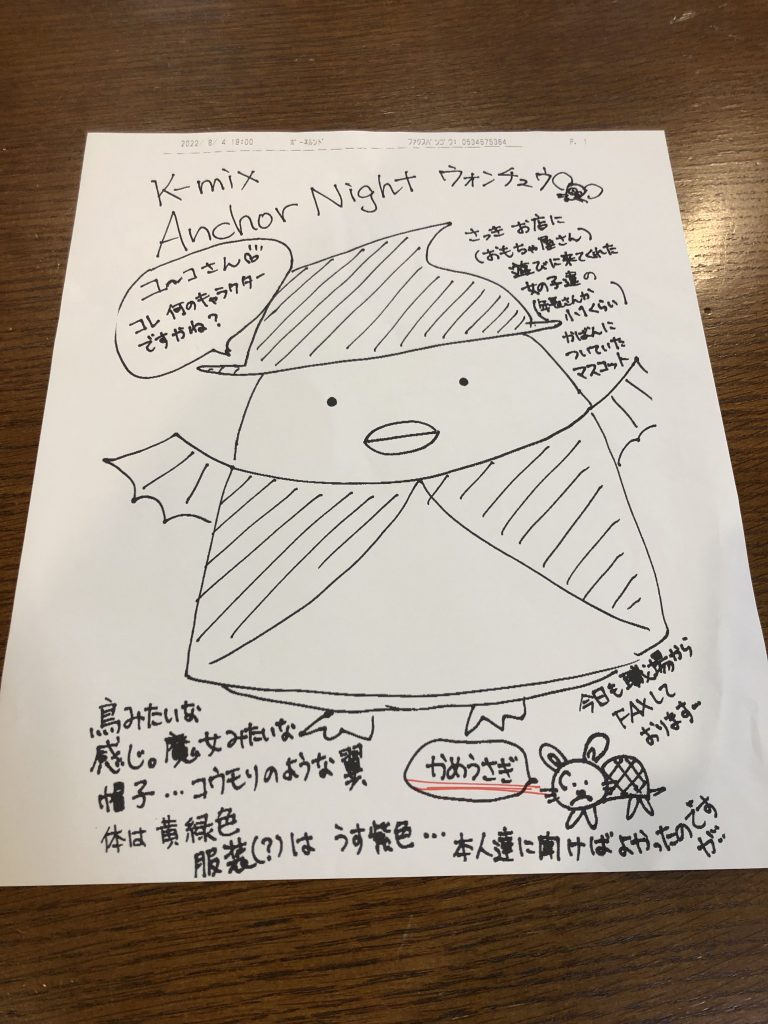 2022/ 8/ 4 19:00 ボーネルンド ファクスバンゴウ: 0534575364 P. 1
K-mix
Anchor Night ウォンチュウ
コ～コさん
コレ 何のキャラクター
ですやね？
さっき お店に
(おもちゃ屋さん)
遊びに来てくれた
女の子達の
(年長さんか
小1くらい)
かばんに
ついていた
マスコット
鳥みたいな
感じ。魔女みたいな
帽子…コウモリのような翼
体は 黄緑色
服装(?)は うす紫色…
本人達に聞けばよかったのです
が…
今日も職場から
FAXして
おりますー
かめうさぎ